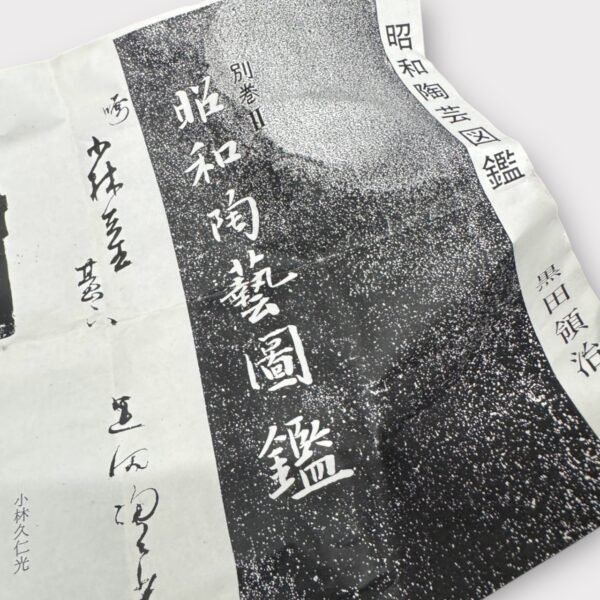 昭和陶芸図鑑
黒田領治
別巻II
昭和陶藝圖鑑
小林
甚六
小林久仁光